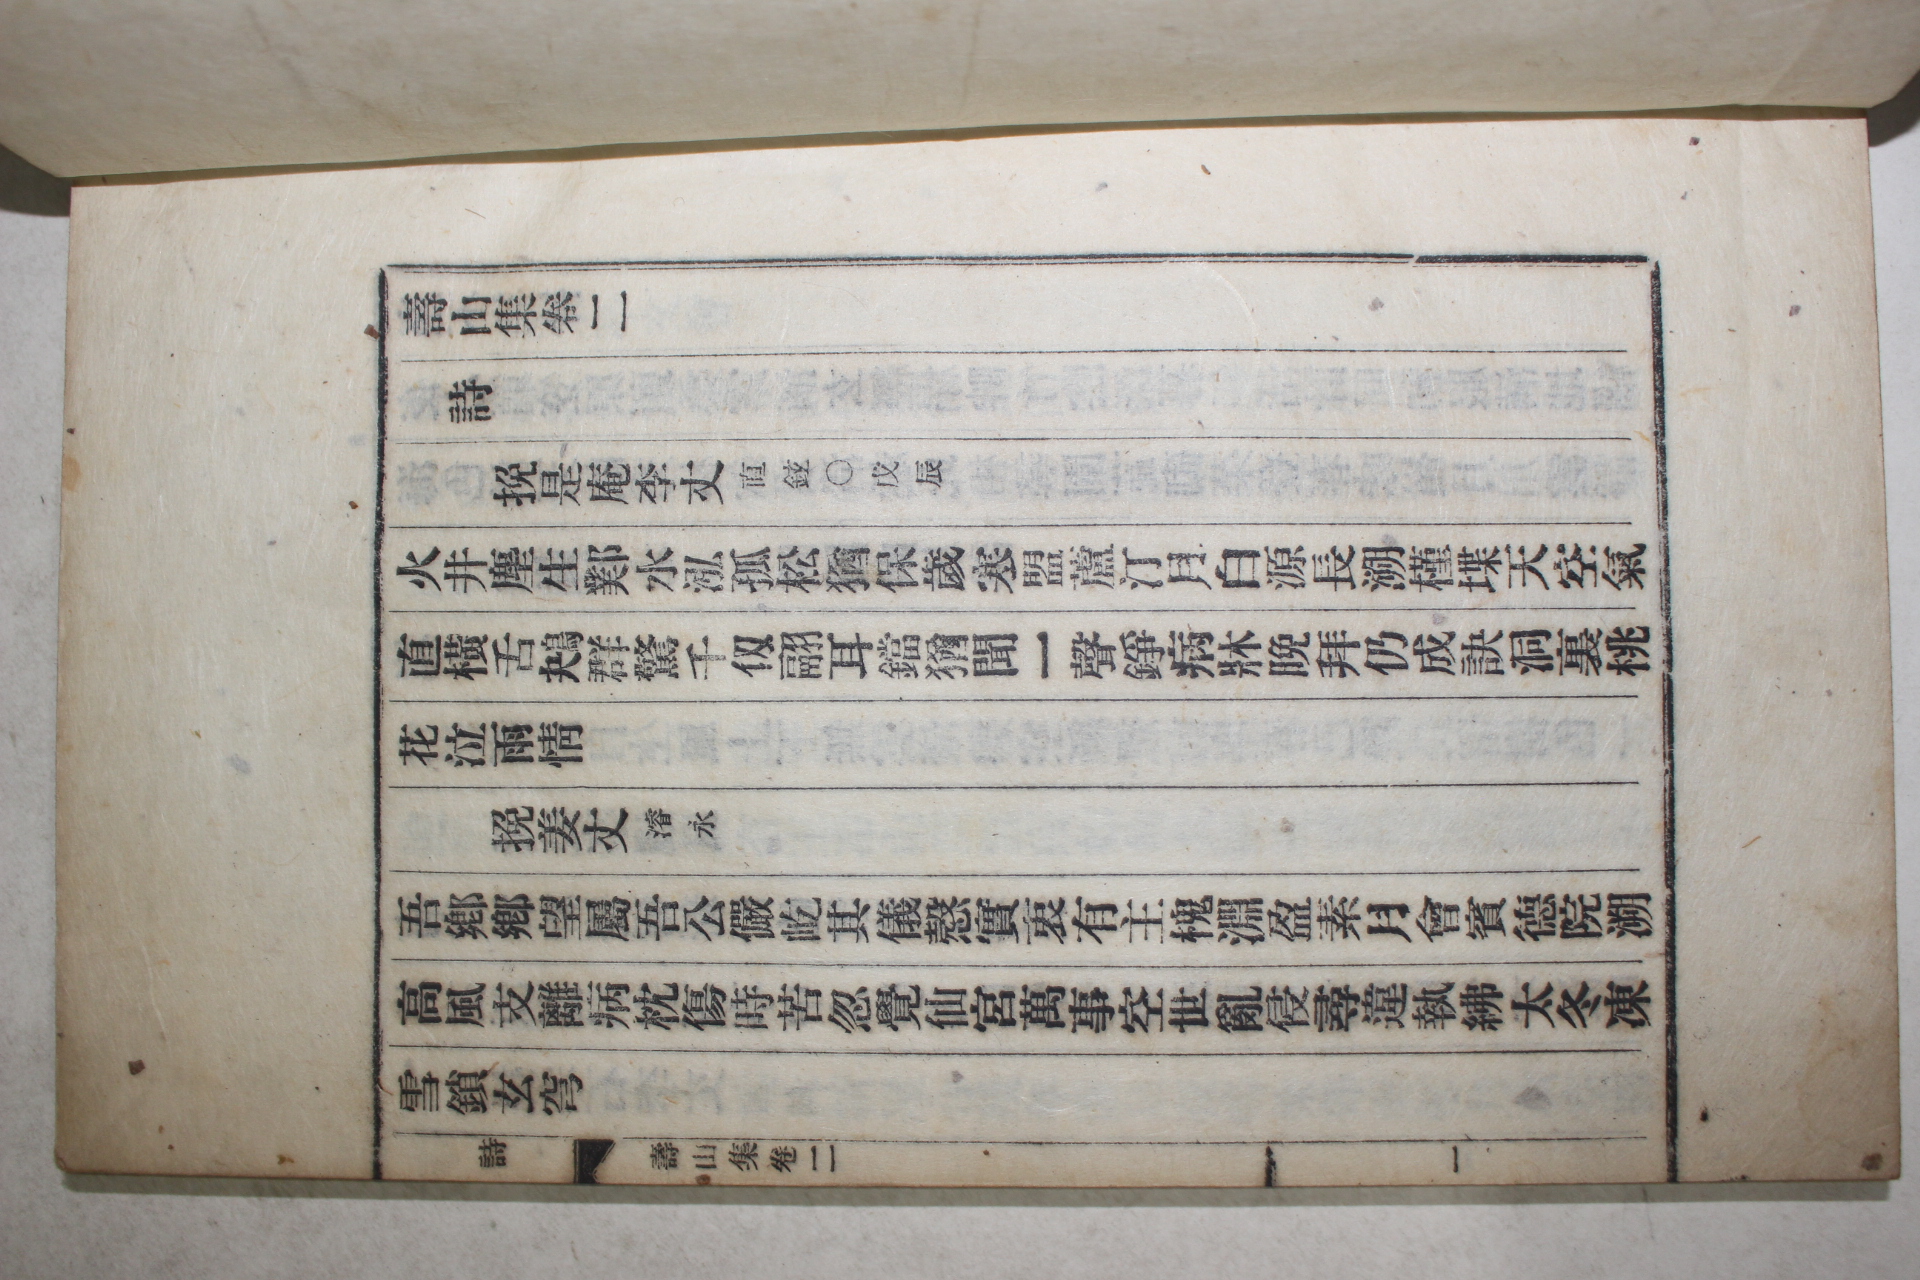 壽山集卷二
詩
挽是庵李丈直鉉○戊辰
火井塵生鄴水泓孤松猶保歲寒盟蘆汀月白源長溯槿堞天空氣
直橫舌鴂群驚千仞翮耳鐺猶聞一聲錚病牀晩拜仍成訣洞裏桃
花泣雨情
挽姜丈濬永
吾鄕鄕望屬吾公儼屹其儀慤實衷有主槐淵盈素月會賓德院溯
高風支離病枕傷時苦忽覺仙宮萬事空世亂侵尋違執紼太冬凍
雪鎖玄穹
詩 壽山集卷二 一